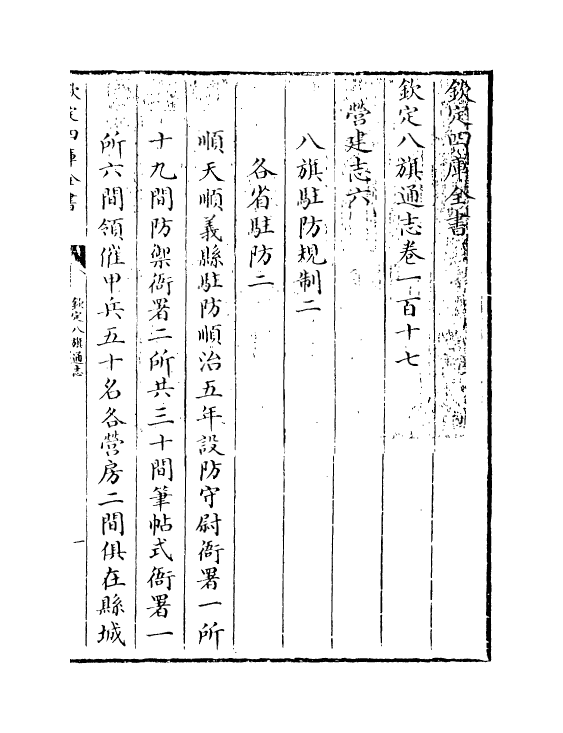 欽定四庫全書
欽定八旗通志卷一百十七
營建志六
八旗駐防規制二
各省駐防二
順天順義縣駐防順治五年設防守尉衙署一所
十九間防禦衙署二所共三十間筆帖式衙署一
所六間領催甲兵五十名各營房二間俱在縣城
欽定四庫全書
欽定八旗通志
一